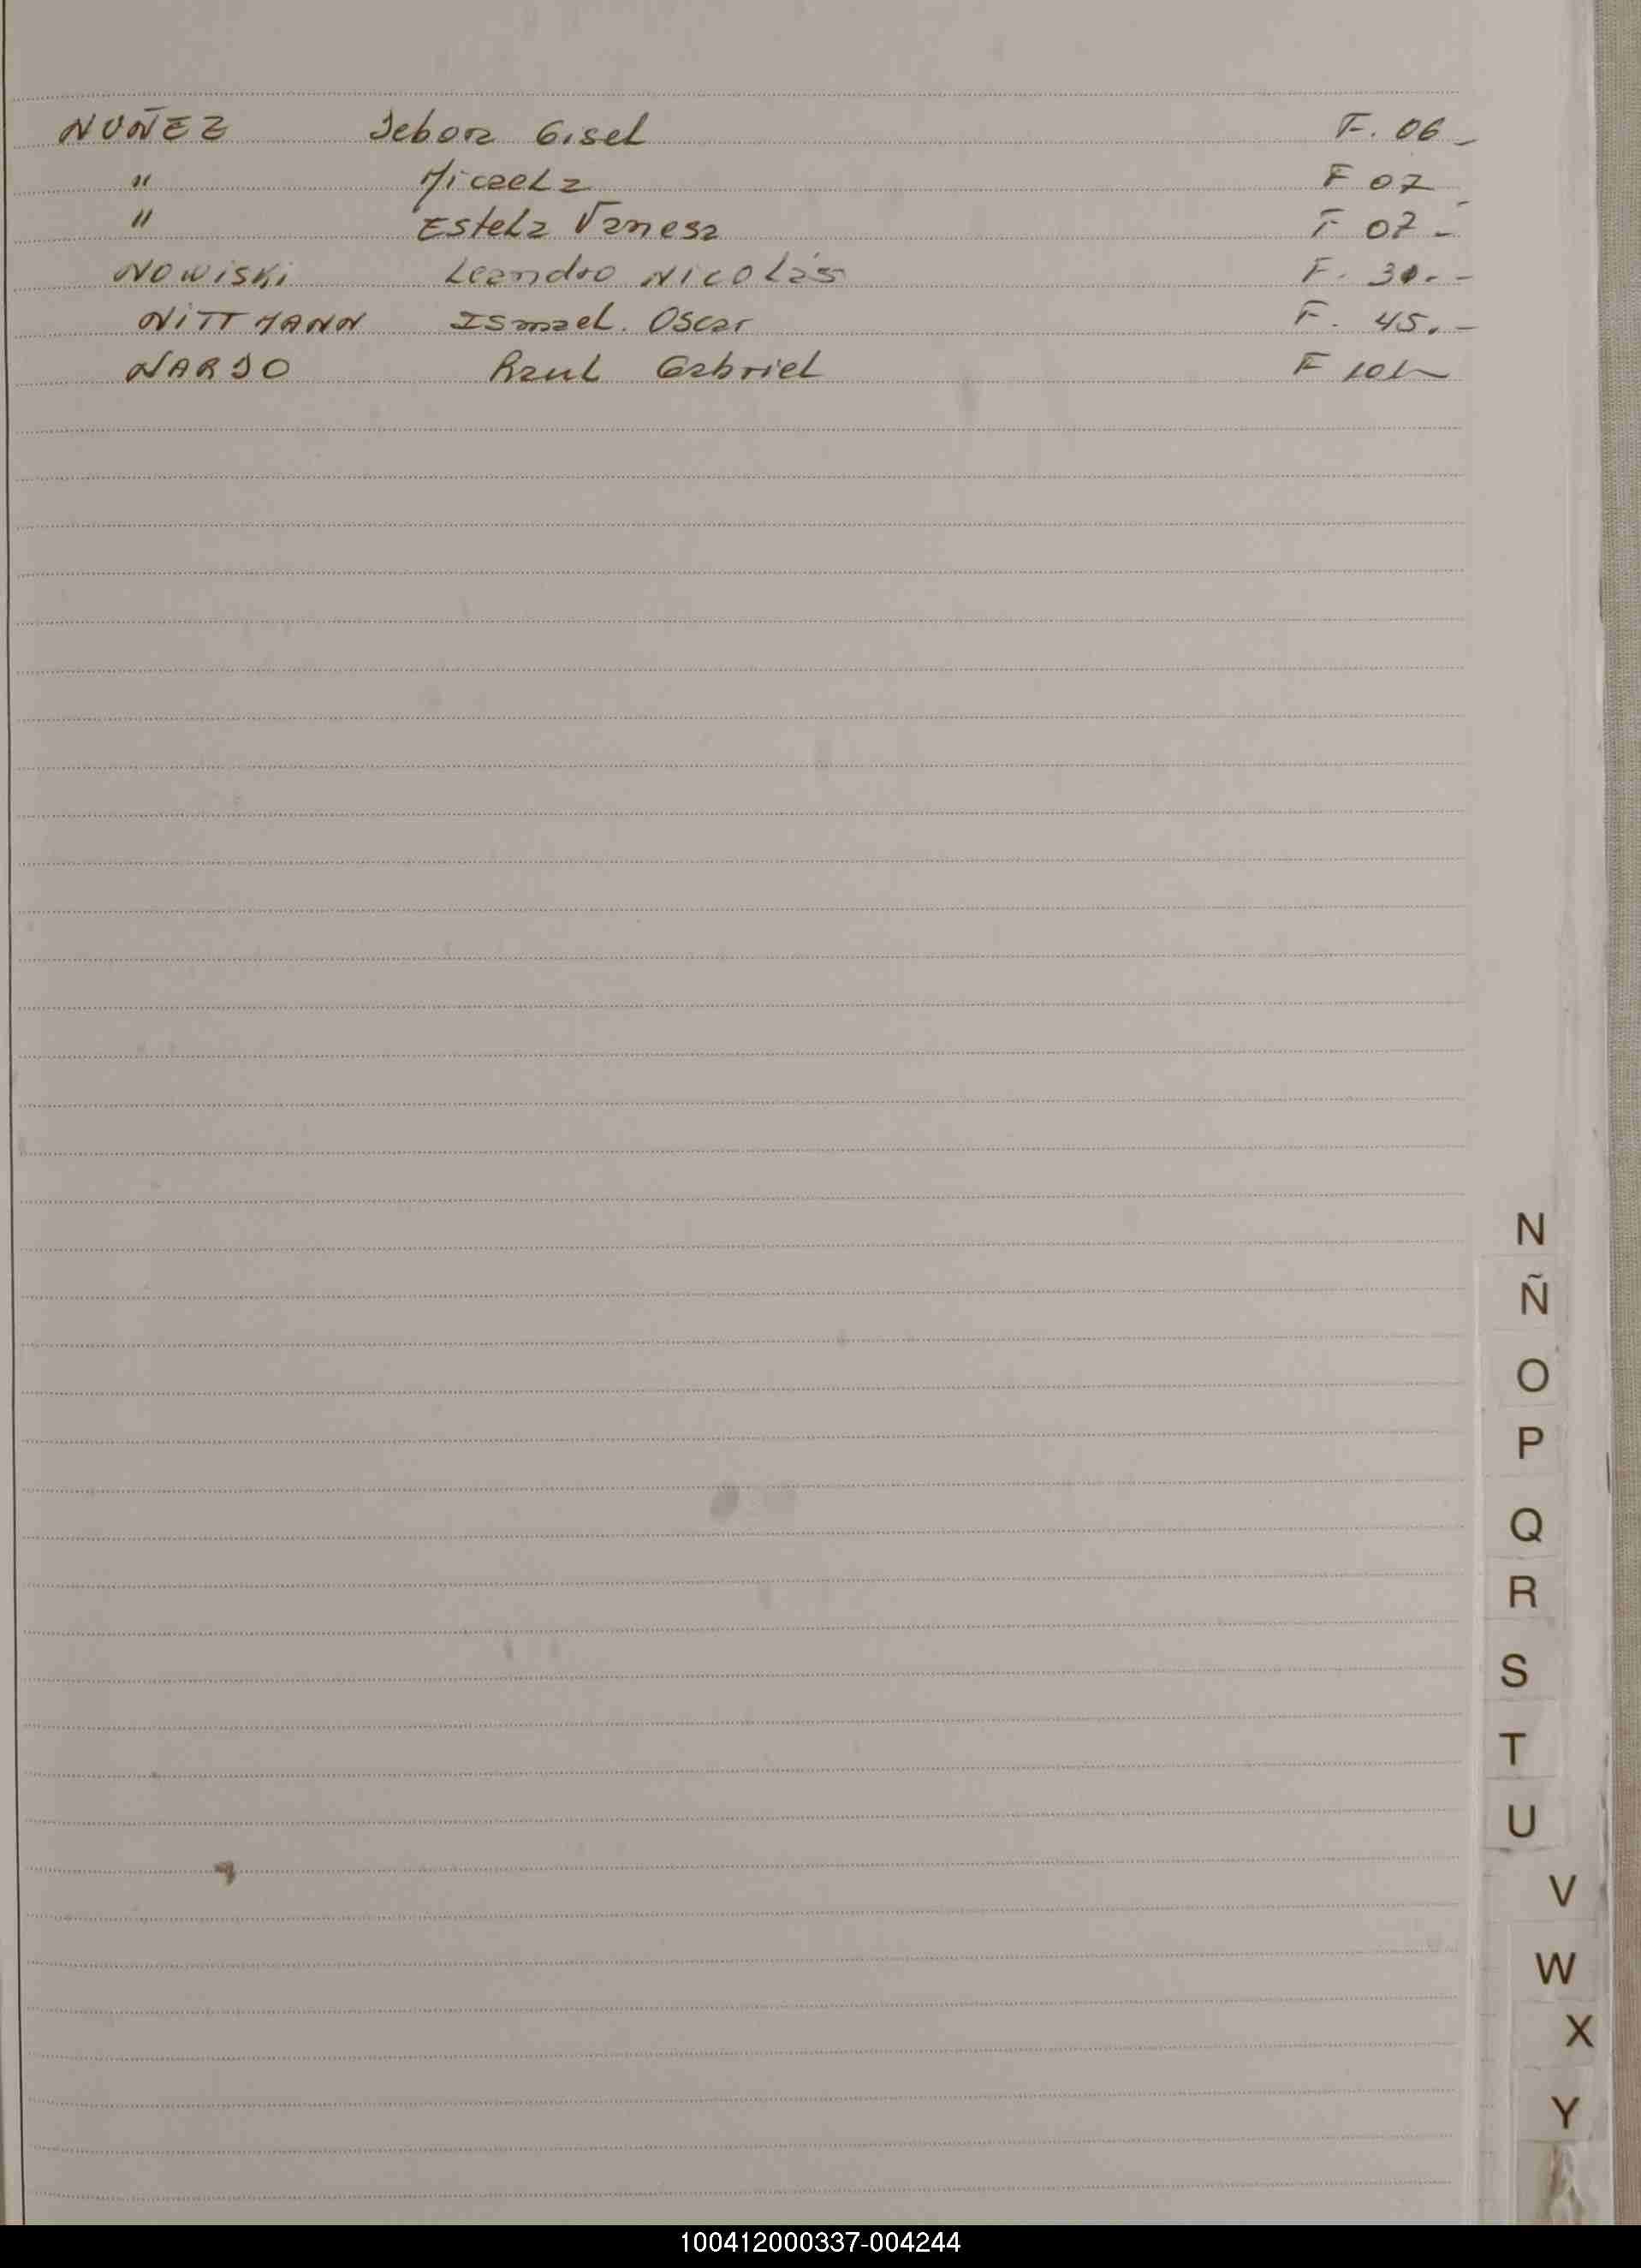 NUÑEZ Debora Gisel F. 06 -
" Micaela F 07 -
" Estela Vanesa F 07 -
NOWISKi Leandro NICOLás F. 30. -
NiTTMANN ISmael. Oscar F. 45. -
NARDO Raul Gabriel F 101
N
Ñ
O
P
Q
R
S
T
U
V
W
X
Y
100412000337-004244